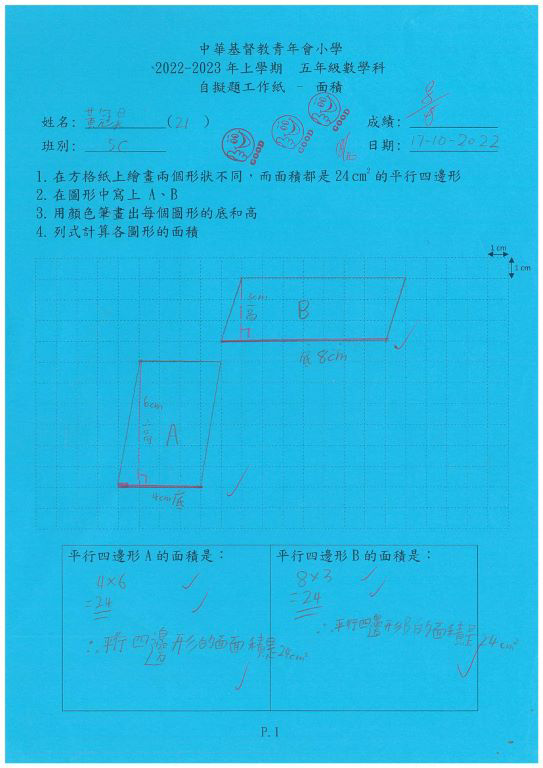 中華基督教青年會小學
2022-2023 年上學期 五年級數學科
自擬題工作紙 - 面積
姓名: 黃 (21)
成績:
班別: 5C
日期: 17-10-2022
GOOD GOOD GOOD
1. 在方格紙上繪畫兩個形狀不同，而面積都是 24 cm² 的平行四邊形
2. 在圖形中寫上 A、B
3. 用顏色筆畫出每個圖形的底和高
4. 列式計算各圖形的面積
1 cm
1 cm
3cm
高
B
底 8cm
6cm
高
A
4cm底
平行四邊形 A 的面積是：
4×6
=24
∴平行四邊形的面面積是24cm²
平行四邊形 B 的面積是：
8×3
=24
∴平行四邊形B的面積是24cm²
P.1